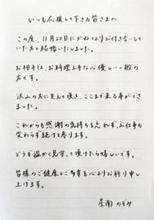 いつも応援して下さる皆さまへ
この度、11月22日にかねてよりお付き合いして
いた方と結婚いたしました。
お相手は、お料理上手な心優しい一般の
方です。
沢山の方に支えて頂き、ここまで来る事ができ
ました。
これからも感謝の気持ちを忘れず、お仕事も
変わらず続けて参ります。
どうぞ温かく見守って頂けたら嬉しいです。
皆様のご健康とご多幸を心よりお祈り申し
上げます。
星南のぞみ